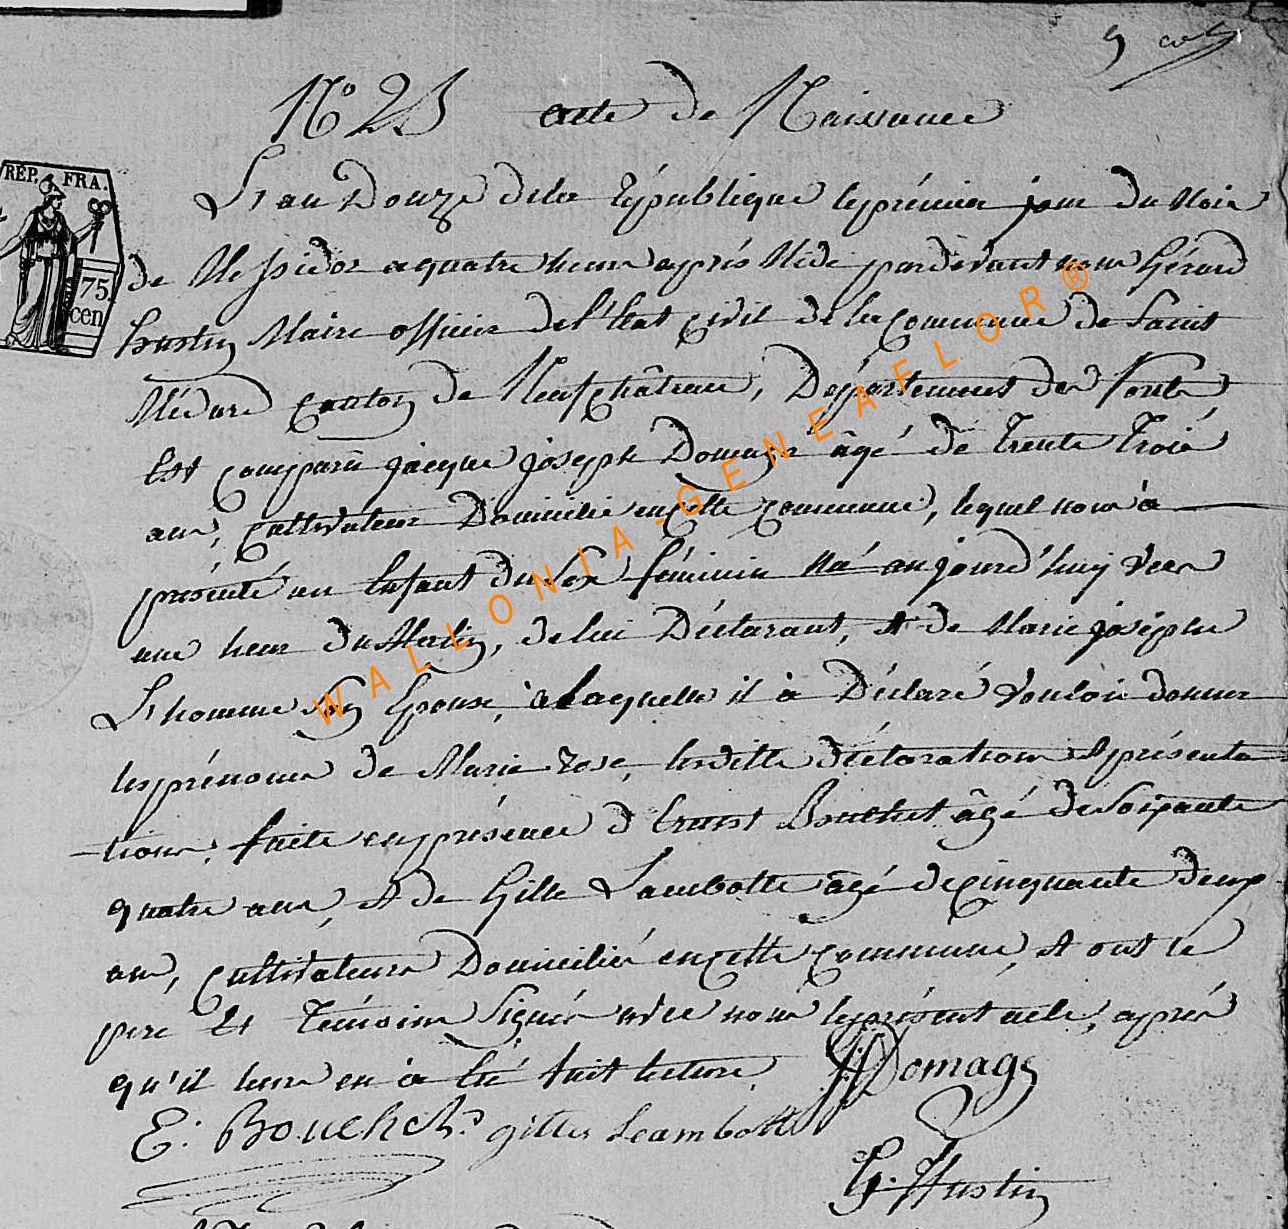 N° 25 acte de Naissance
RÉP. FRA.
75
cen
L'an Douze dela République le prémier jour du Mois
de Messidor a quatre heure aprés Midi pardevant nous Gérard
Hustin Maire officier de l'Etat civil de la commune de Saint
Médard canton de Neufchâteau, Département des Forêts
Est comparu jacque joseph Domage âgé de Trente Trois
ans, cultivateur Domicilié en cette commune, lequel nous à
présenté un Enfant du Sex féminin Né aujourd'huy vers
une heur du Matin, de lui Déclarant, et de Marie joséphe
L'homme son Epouse, à laquelle il à Déclaré vouloir donner
les prénoms de Marie Rose, lesditte déclaration et présenta
tions, faite en présence d'Ernest Bouchet âgé de Soixante
quatre ans, et de Gille Lambotte âgé de cinquante deux
ans, cultivateurs Domiciliés en cette commune, et ont le
pere et Témoins Signés avec nous le présent acte, aprés
qu'il leurs en à été fait lecture. JJDomage
E: Bouchet gilles Lambotte
G. Hustin
WALLONIA-GENEAFLOR®